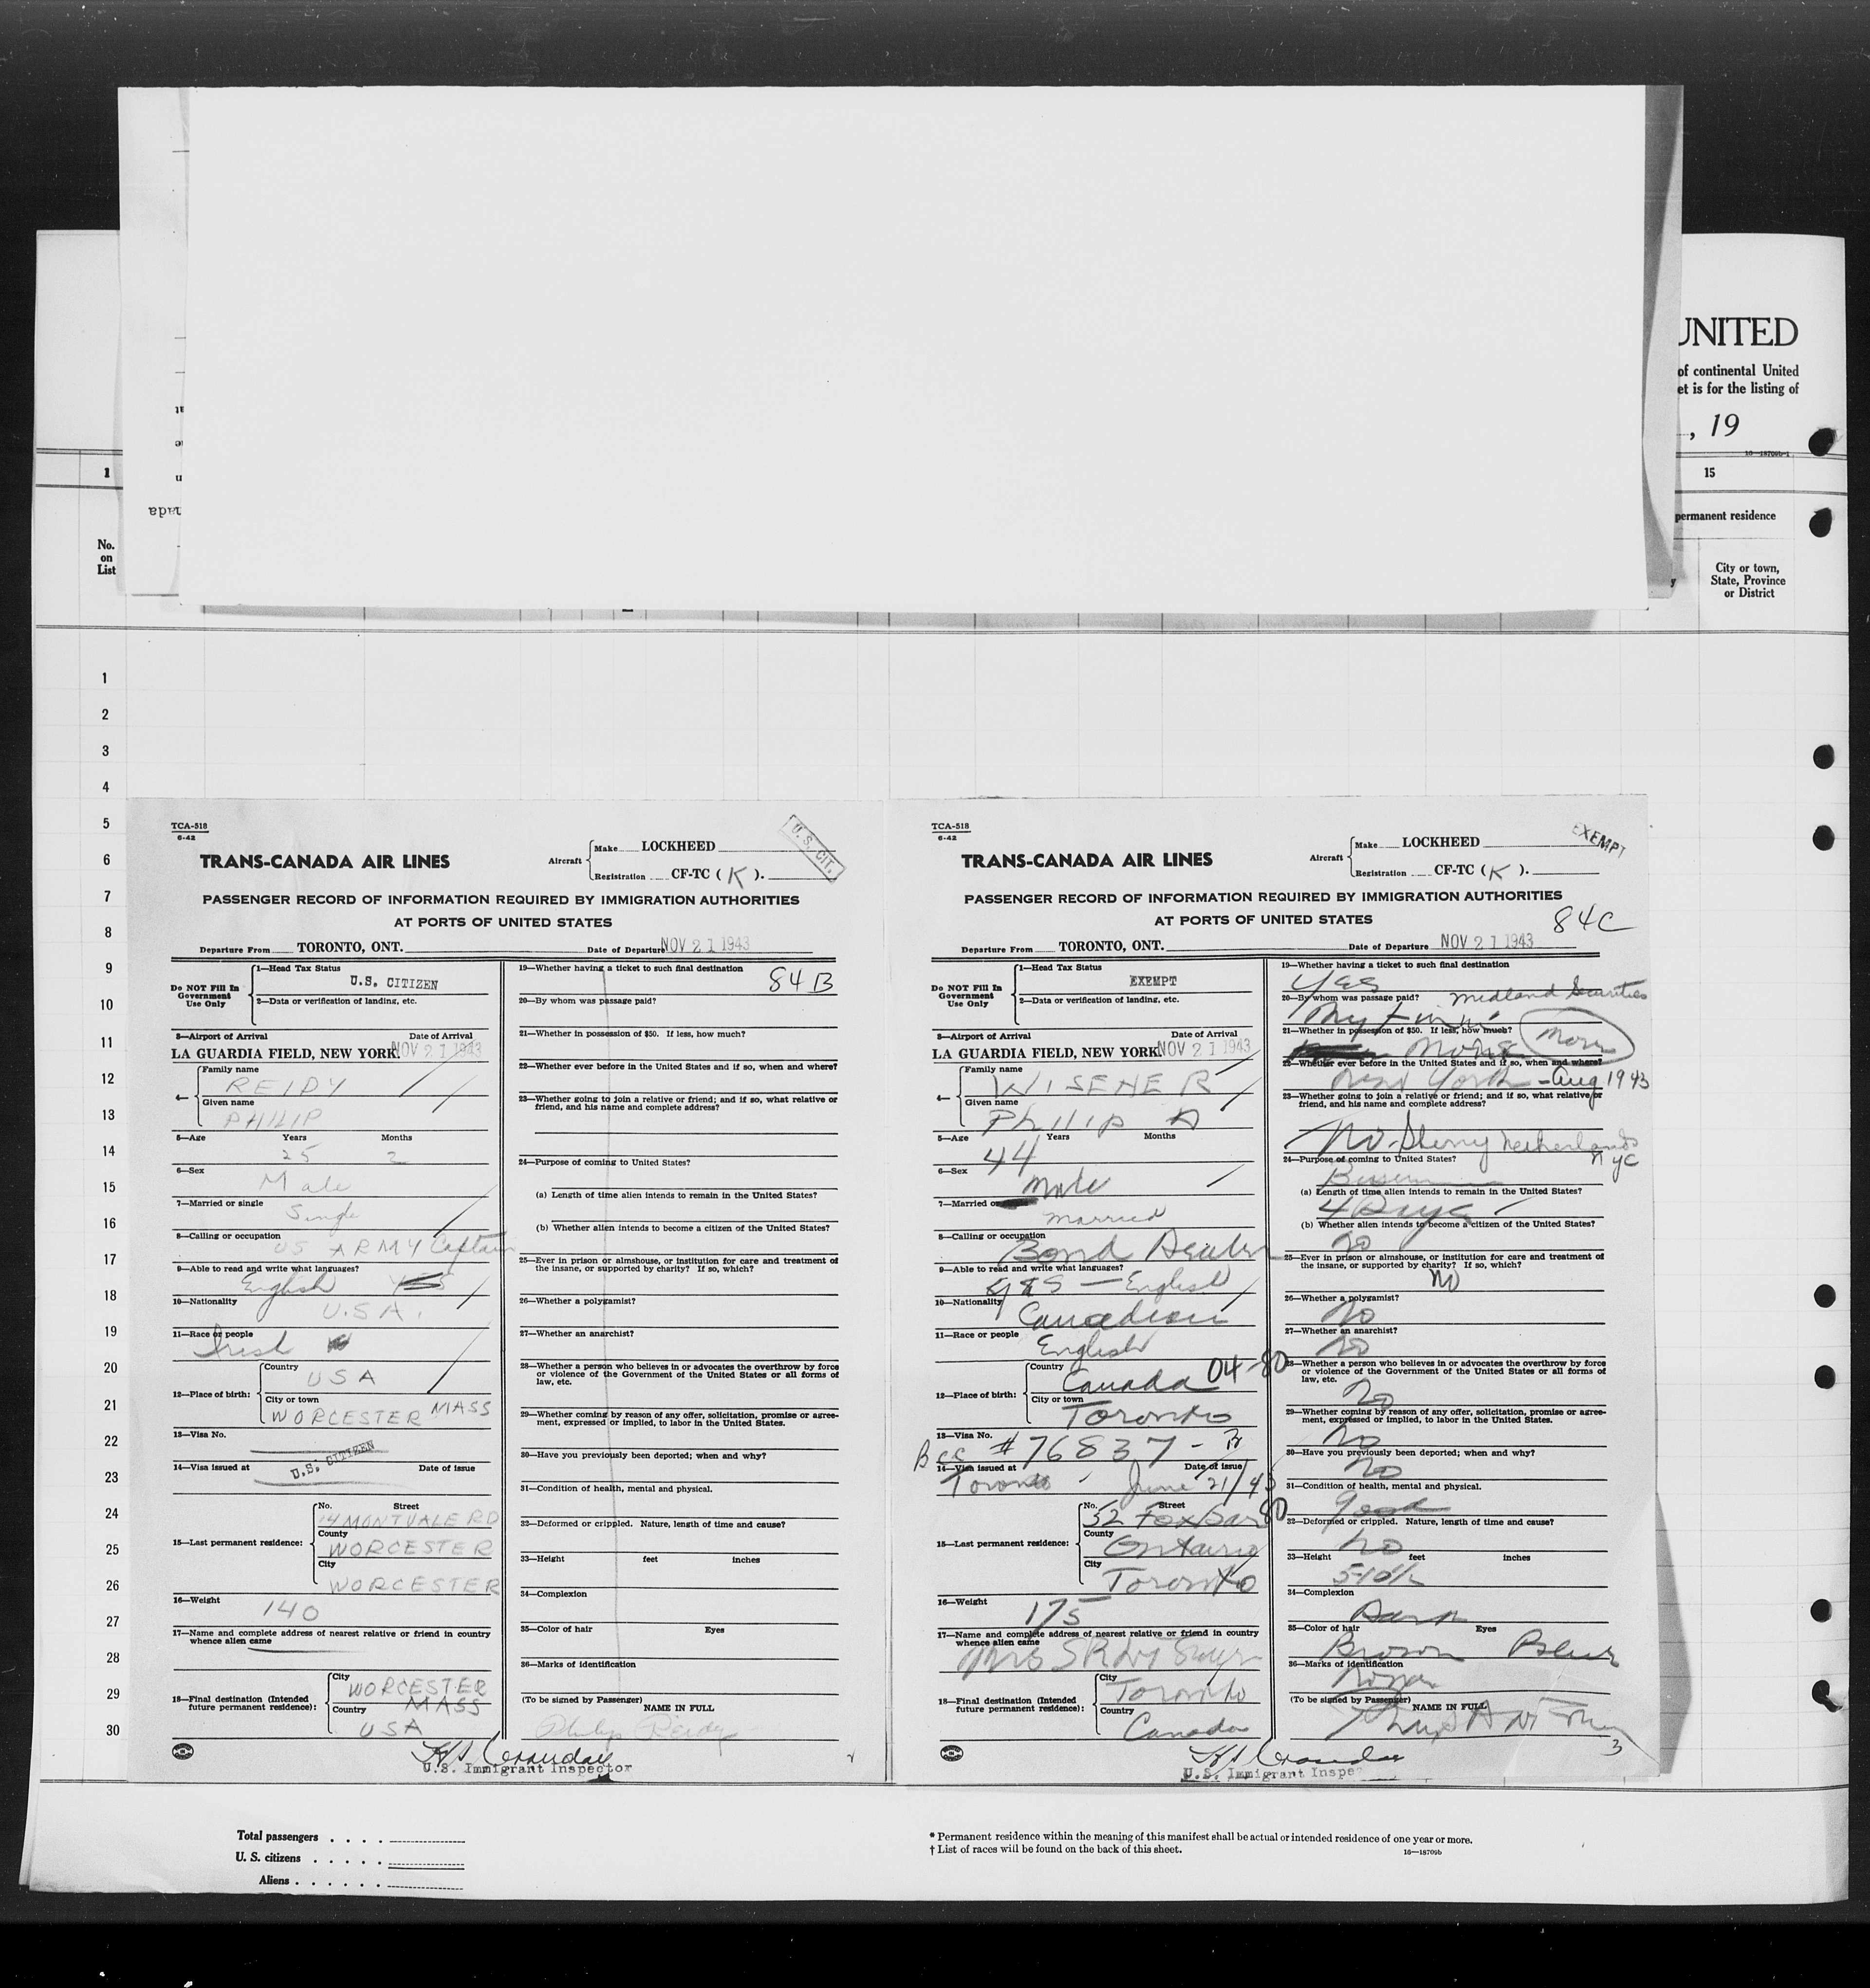 UNITED
of continental United
et is for the listing of
, 19
16—18709b-1
1
15
permanent residence
No.
on
List
City or town,
State, Province
or District
1
2
3
4
5
6
7
8
9
10
11
12
13
14
15
16
17
18
19
20
21
22
23
24
25
26
27
28
29
30
TCA-518
6-42
U.S. CIT.
TRANS-CANADA AIR LINES
Aircraft
Make LOCKHEED
Registration CF-TC ( K ).
PASSENGER RECORD OF INFORMATION REQUIRED BY IMMIGRATION AUTHORITIES
AT PORTS OF UNITED STATES
Departure From TORONTO, ONT. Date of Departure NOV 21 1943
Do NOT Fill In
Government
Use Only
1—Head Tax Status
U.S. CITIZEN
2—Data or verification of landing, etc.
3—Airport of Arrival Date of Arrival
LA GUARDIA FIELD, NEW YORK. NOV 21 1943
4—
Family name
REIDY
Given name
PHILIP
5—Age Years Months
25 2
6—Sex
Male
7—Married or single
Single
8—Calling or occupation
US ARMY Captain
9—Able to read and write what languages?
English YES
10—Nationality
U.S.A.
11—Race or people
Irish
12—Place of birth:
Country
USA
City or town
WORCESTER MASS
13—Visa No.
U.S. CITIZEN
14—Visa issued at Date of issue
15—Last permanent residence:
No. Street
14 MONTVALE RD
County
WORCESTER
City
WORCESTER
16—Weight
140
17—Name and complete address of nearest relative or friend in country
whence alien came
18—Final destination (Intended
future permanent residence):
City
WORCESTER
MASS
Country
USA
19—Whether having a ticket to such final destination
84B
20—By whom was passage paid?
21—Whether in possession of $50. If less, how much?
22—Whether ever before in the United States and if so, when and where?
23—Whether going to join a relative or friend; and if so, what relative or
friend, and his name and complete address?
24—Purpose of coming to United States?
(a) Length of time alien intends to remain in the United States?
(b) Whether alien intends to become a citizen of the United States?
25—Ever in prison or almshouse, or institution for care and treatment of
the insane, or supported by charity? If so, which?
26—Whether a polygamist?
27—Whether an anarchist?
28—Whether a person who believes in or advocates the overthrow by force
or violence of the Government of the United States or all forms of
law, etc.
29—Whether coming by reason of any offer, solicitation, promise or agree-
ment, expressed or implied, to labor in the United States.
30—Have you previously been deported; when and why?
31—Condition of health, mental and physical.
32—Deformed or crippled. Nature, length of time and cause?
33—Height feet inches
34—Complexion
35—Color of hair Eyes
36—Marks of identification
(To be signed by Passenger) NAME IN FULL
Philip Reidy
U.S. Immigrant Inspector
2
TCA-518
6-42
EXEMPT
TRANS-CANADA AIR LINES
Aircraft
Make LOCKHEED
Registration CF-TC ( K ).
PASSENGER RECORD OF INFORMATION REQUIRED BY IMMIGRATION AUTHORITIES
AT PORTS OF UNITED STATES
84C
Departure From TORONTO, ONT. Date of Departure NOV 21 1943
Do NOT Fill In
Government
Use Only
1—Head Tax Status
EXEMPT
2—Data or verification of landing, etc.
3—Airport of Arrival Date of Arrival
LA GUARDIA FIELD, NEW YORK. NOV 21 1943
4—
Family name
WISENER
Given name
Philip A
5—Age Years Months
44
6—Sex
Male
7—Married or
Married
8—Calling or occupation
Bond Dealer
9—Able to read and write what languages?
yes — English
10—Nationality
Canadian
11—Race or people
English
12—Place of birth:
Country
Canada 04-80
City or town
Toronto
13—Visa No.
Bcc #76837 -
14—Visa issued at Date of issue
Toronto June 21/43
15—Last permanent residence:
No. Street
52 Foxbar 80
County
Ontario
City
Toronto
16—Weight
175
17—Name and complete address of nearest relative or friend in country
whence alien came
Mrs
18—Final destination (Intended
future permanent residence):
City
Toronto
Country
Canada
19—Whether having a ticket to such final destination
Yes
20—By whom was passage paid? Midland Securities
My Firm
21—Whether in possession of $50. If less, how much?
More
22—Whether ever before in the United States and if so, when and where?
New York - Aug 1943
23—Whether going to join a relative or friend; and if so, what relative or
friend, and his name and complete address?
No - Sherry Netherlands
NYC
24—Purpose of coming to United States?
Business
(a) Length of time alien intends to remain in the United States?
4 Days
(b) Whether alien intends to become a citizen of the United States?
No
25—Ever in prison or almshouse, or institution for care and treatment of
the insane, or supported by charity? If so, which?
No
26—Whether a polygamist?
No
27—Whether an anarchist?
No
28—Whether a person who believes in or advocates the overthrow by force
or violence of the Government of the United States or all forms of
law, etc.
No
29—Whether coming by reason of any offer, solicitation, promise or agree-
ment, expressed or implied, to labor in the United States.
No
30—Have you previously been deported; when and why?
No
31—Condition of health, mental and physical.
Good
32—Deformed or crippled. Nature, length of time and cause?
No
33—Height feet inches
5-10½
34—Complexion
Dark
35—Color of hair Eyes
Brown Blue
36—Marks of identification
(To be signed by Passenger) NAME IN FULL
3
U.S. Immigrant Inspe
Total passengers . . . .
U. S. citizens . . . . .
Aliens . . . . . .
* Permanent residence within the meaning of this manifest shall be actual or intended residence of one year or more.
† List of races will be found on the back of this sheet.
16—18709b